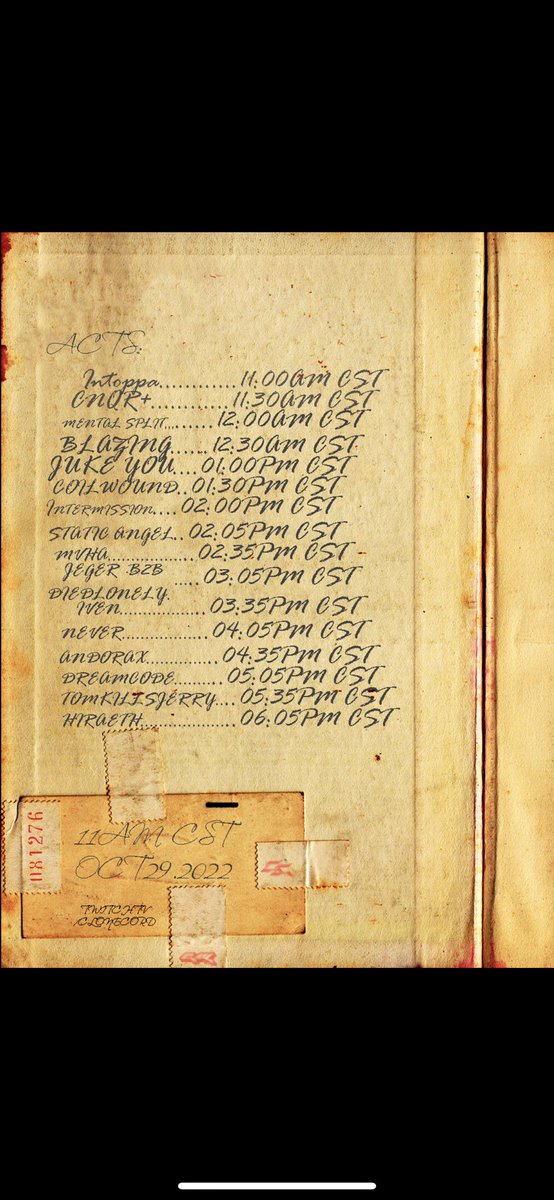 ACTS:
Intoppa............11:00am CST
CNQR+............11:30am CST
MENTAL SPLIT........12:00am CST
BLAZING...... 12:30am CST
JUKE YOU.... 01:00Pm CST
COILWOUND.. 01:30Pm CST
INTERMISSION..... 02:00Pm CST
STATIC ANGEL.. 02:05Pm CST
MVHA................ 02:35Pm CST
JEGER B2B ..... 03:05Pm CST
DIEDLONELY.
IVEN................. 03:35Pm CST
NEVER................ 04:05Pm CST
ANDORAX.............. 04:35Pm CST
DREAMCODE.......... 05:05Pm CST
TOMKILLSJERRY.... 05:35Pm CST
HIRAETH.................. 06:05Pm CST
081276
11AM CST
OCT29.2022
TWITCH.TV
/CLONECORD